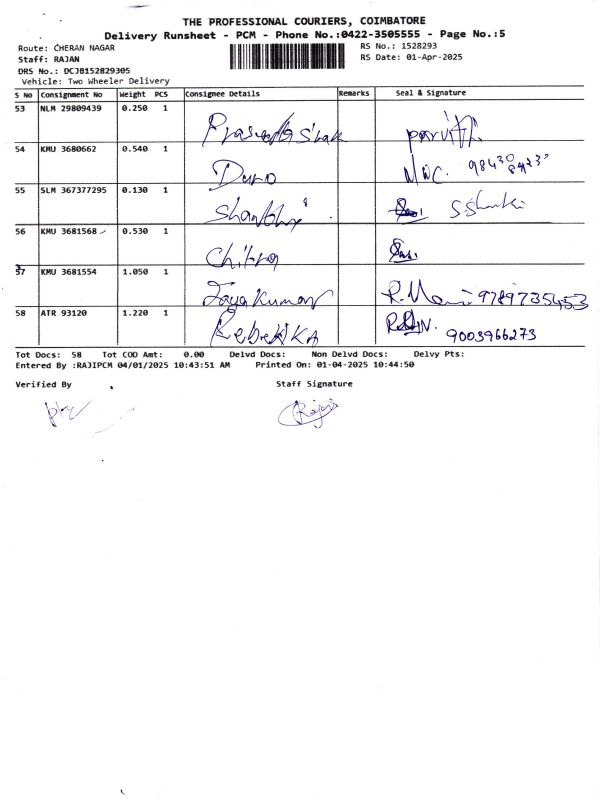 THE PROFESSIONAL COURIERS, COIMBATORE
Delivery Runsheet - PCM - Phone No.:0422-3505555 - Page No.:5
Route: CHERAN NAGAR
RS No.: 1528293
Staff: RAJAN
RS Date: 01-Apr-2025
DRS No.: DCJB152829305
Vehicle: Two Wheeler Delivery
S No Consignment No Weight PCS Consignee Details Remarks Seal & Signature
53 NLM 29809439 0.250 1
54 KMU 3680662 0.540 1 Duro
55 SLM 367377295 0.130 1 Shanthi
56 KMU 3681568 0.530 1 Chitra
57 KMU 3681554 1.050 1 Jaya Kumar R.Mani 9789735453
58 ATR 93120 1.220 1 RebekKA 9003966273
Tot Docs: 58 Tot COD Amt: 0.00 Delvd Docs: Non Delvd Docs: Delvy Pts:
Entered By :RAJIPCM 04/01/2025 10:43:51 AM Printed On: 01-04-2025 10:44:50
Verified By Staff Signature
Rajan